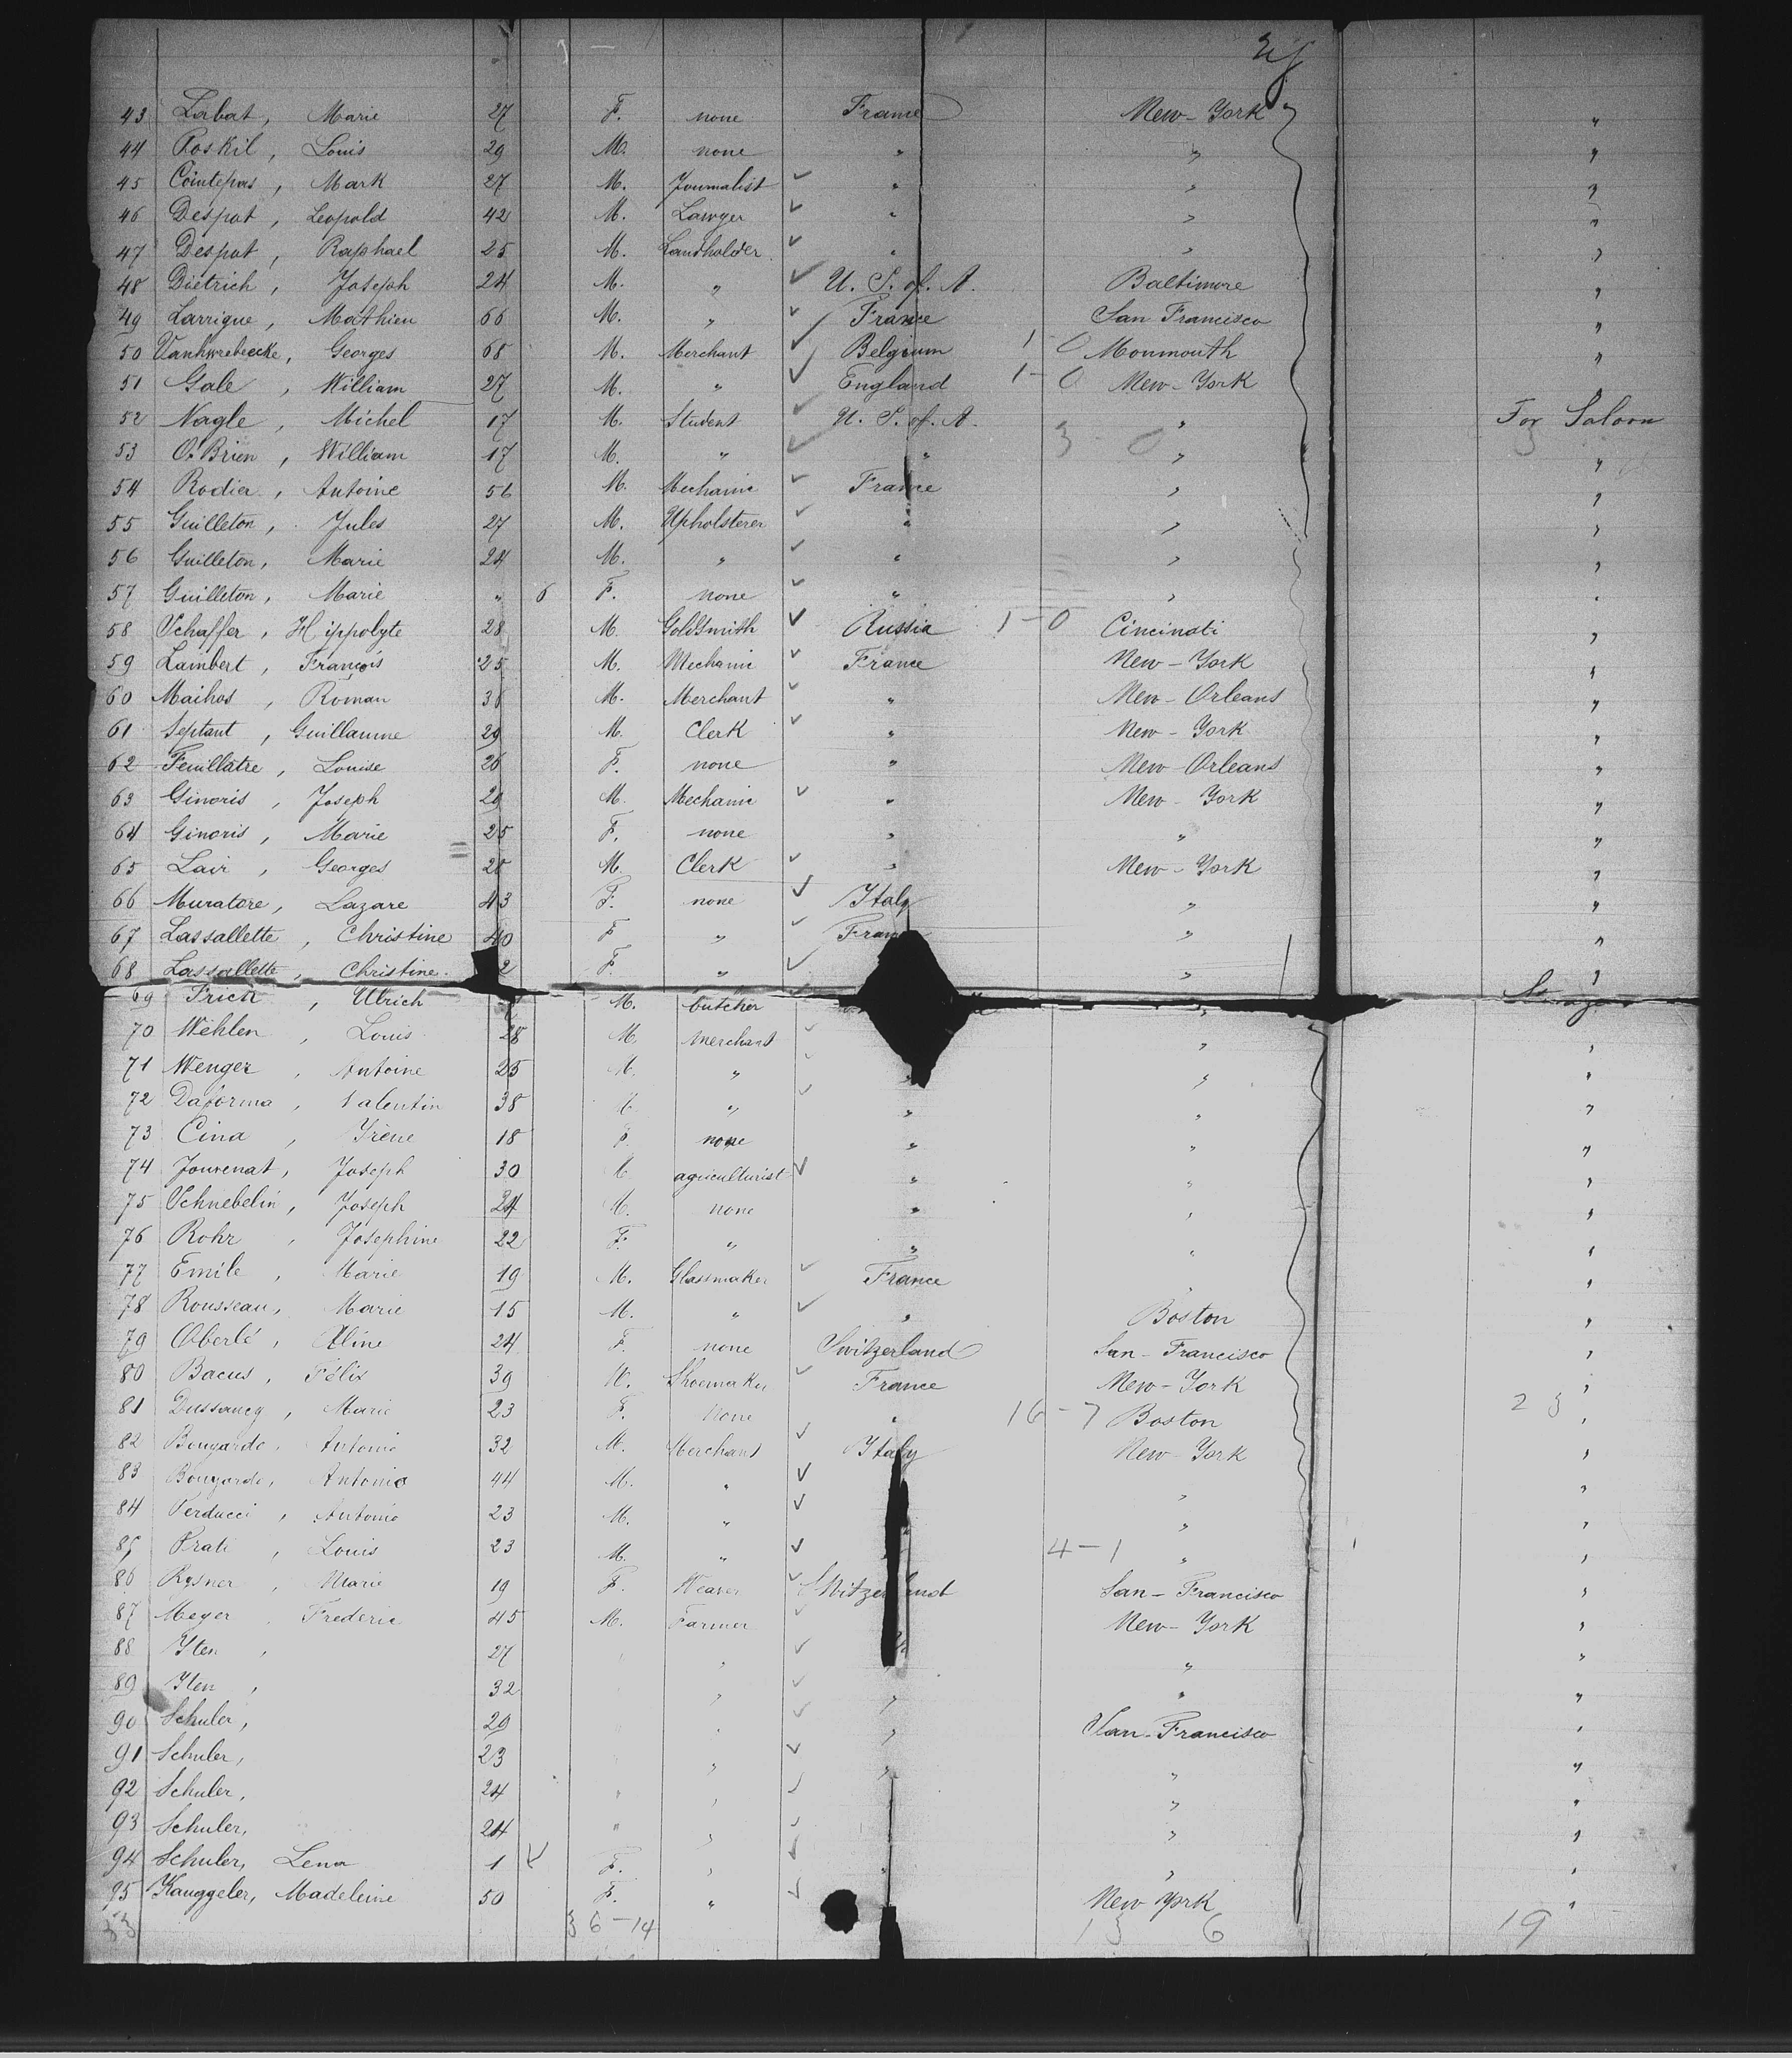 43 Labat, Marie 27 F. none France New-York "
44 Poskil, Louis 29 M. none " " "
45 Cointepas, Mark 27 M. Journalist " " "
46 Despat, Leopold 42 M. Lawyer " " "
47 Despat, Raphael 25 M. Landholder " " "
48 Dietrich, Joseph 24 M. " U. S. of. A. Baltimore "
49 Larrique, Mathieu 66 M. " France San Francisco "
50 Georges 68 M. Merchant Belgium 1 - 0 Monmouth "
51 Gale, William 27 M. " England 1 - 0 New-York
52 Nagle, Michel 17 M. Student U. S. of. A. " For Saloon
53 O'Brien, William 17 M. " " 3 - 0 " "
54 Rodier, Antoine 56 M. Mechanic France " "
55 Guilleton, Jules 27 M. Upholsterer " " "
56 Guilleton, Marie 24 M. " " " "
57 Guilleton, Marie " 6 F. none " " "
58 Schaffer, Hippolyte 28 M. Goldsmith Russia 1 - 0 Cincinati "
59 Lambert, François 25 M. Mechanic France New-York "
60 Maihos, Roman 36 M. Merchant " New-Orleans "
61 Septant, Guillaume 29 M. Clerk " New-York "
62 Feuillatre, Louise 26 F. none " New-Orleans "
63 Ginoris, Joseph M. Mechanic " New-York "
64 Ginoris, Marie 25 F. none " " "
65 Lair, Georges 28 M. Clerk " New-York "
66 Muratore, Lazare 43 F. none Italy " "
67 Lassallette, Christine 40 F " France " "
68 Lassallette, Christine. 2 F. " " "
69 Frick, Ulrich M. butcher "
70 Wehlen, Louis 28 M. Merchant " "
71 Wenger, Antoine 25 M. " " " "
72 Valentin 38 M. " " " "
73 Cina, Irène 18 F. none " " "
74 Jouvenat, Joseph 30 M. agriculturist " " "
75 Schnebelin, Joseph 24 M. none " " "
76 Rohr, Josephine 22 F. " " " "
77 Emile, Marie 19 M. Glassmaker France " "
78 Rousseau, Marie 15 M. " " Boston "
79 Oberlé, Aline 24 F. none Switzerland San-Francisco "
80 Bacus, Félix 39 M. Shoemaker France New-York "
81 Marie 23 F. None " 16 - 7 Boston 23 "
82 Antonio 32 M. Merchant Italy New-York "
83 Antonio 44 M. " " "
84 Verducci, Antonio 23 M. " " "
85 Prati, Louis 23 M. " 4 - 1 " "
86 Marie 19 F. Weaver Switzerland San-Francisco "
87 Meyer, Frederic 45 M. Farmer New-York "
88 Iten, 27 " " "
89 Iten, 32 " " " "
90 Schuler, 29 " " San-Francisco "
91 Schuler, 23 " " " "
92 Schuler, 24 " " " "
93 Schuler, 24 " " " "
94 Schuler, Lena 1 F. " " " "
95 Kauggeler, Madeleine 50 F. " New York "
53 36-14 13 6 19